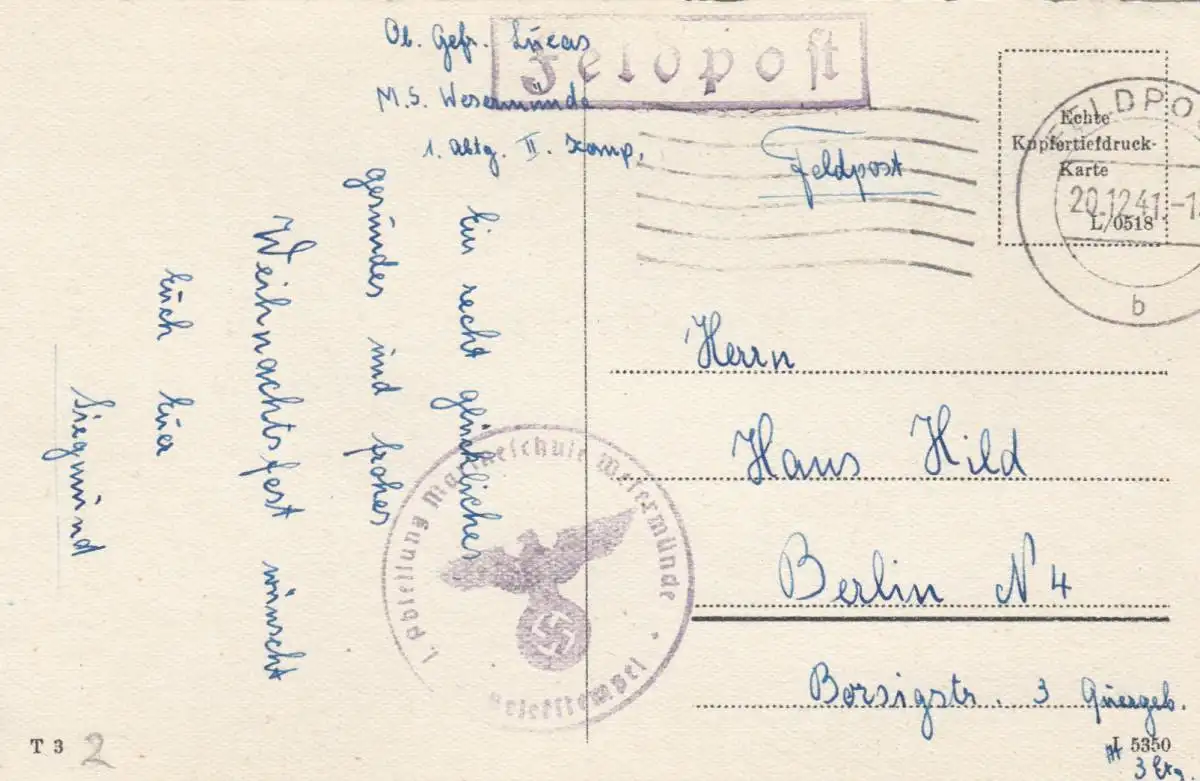 Ob. Gefr. Lucas
M.S. Wesermünde
1. Abtg. II. Komp.
Feldpost
Feldpost
Echte
Kupfertiefdruck-
Karte
L/0518
FELDPO
20.12.41.-1
b
Ein recht glückliches
gesundes und frohes
Weihnachtsfest wünscht
Euch Euer
Siegmund
1. Abteilung Marineschule Wesermünde
Briefstempel
Herrn
Hans Hild
Berlin N 4
Borsigstr. 3 Quergeb.
3
T 3
2
L 5350